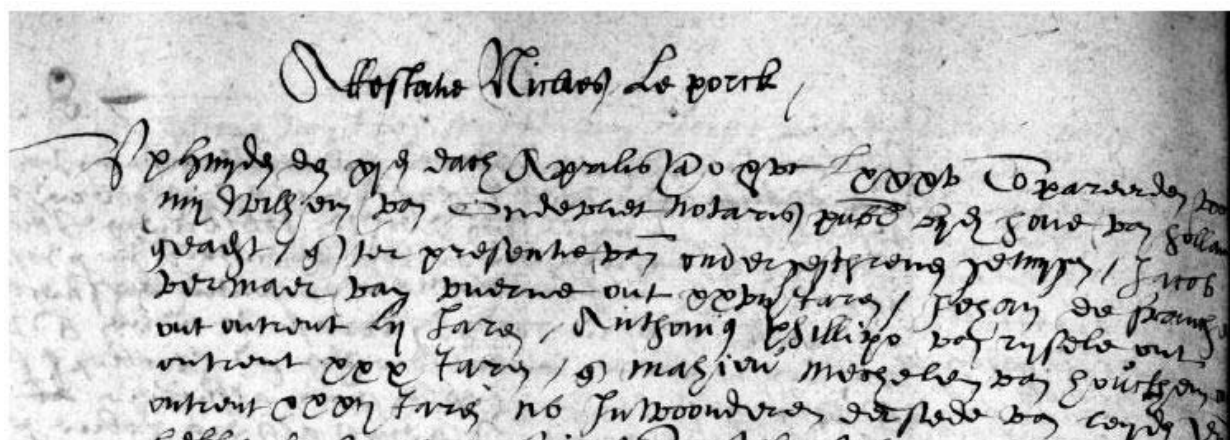 Attestatie Niclaes Le porck
Op huyden den xije dach Aprilis Ao xvc Lxxxv Compareerden voor
mij Willem van Oudevliet notaris publ bijden hove van Hollant
geadt, en ter presentie van onderscreven getuygen, Jacob
vermaer van vuerne out xxviij Jaren, Johan de
out ontrent lij Jaren, Anthonis Phillips van rijsele out
ontrent xxx Jaren, en mahieu mechelen van houthem
ontrent xxxij Jaren nu Inwoonderen deser stede van leyden